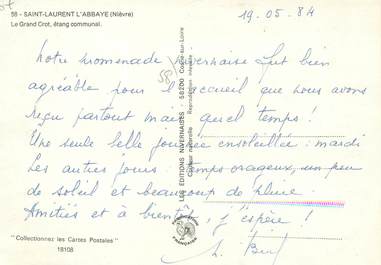 58 - SAINT-LAURENT L'ABBAYE (Nièvre)
Le Grand Crot, étang communal.
19.05.84
Notre promenade nivernaise fut bien
agréable pour l'accueil que nous avons
reçu partout mais quel temps !
Une seule belle journée ensoleillée : mardi
Les autres jours : temps orageux, un peu
de soleil et beaucoup de pluie.
Amitiés et à bientôt, j'espère !
LES EDITIONS NIVERNAISES - 58200 Cosne-sur-Loire
Couleur naturelle Reproduction interdite
58
"Collectionnez les Cartes Postales"
18108